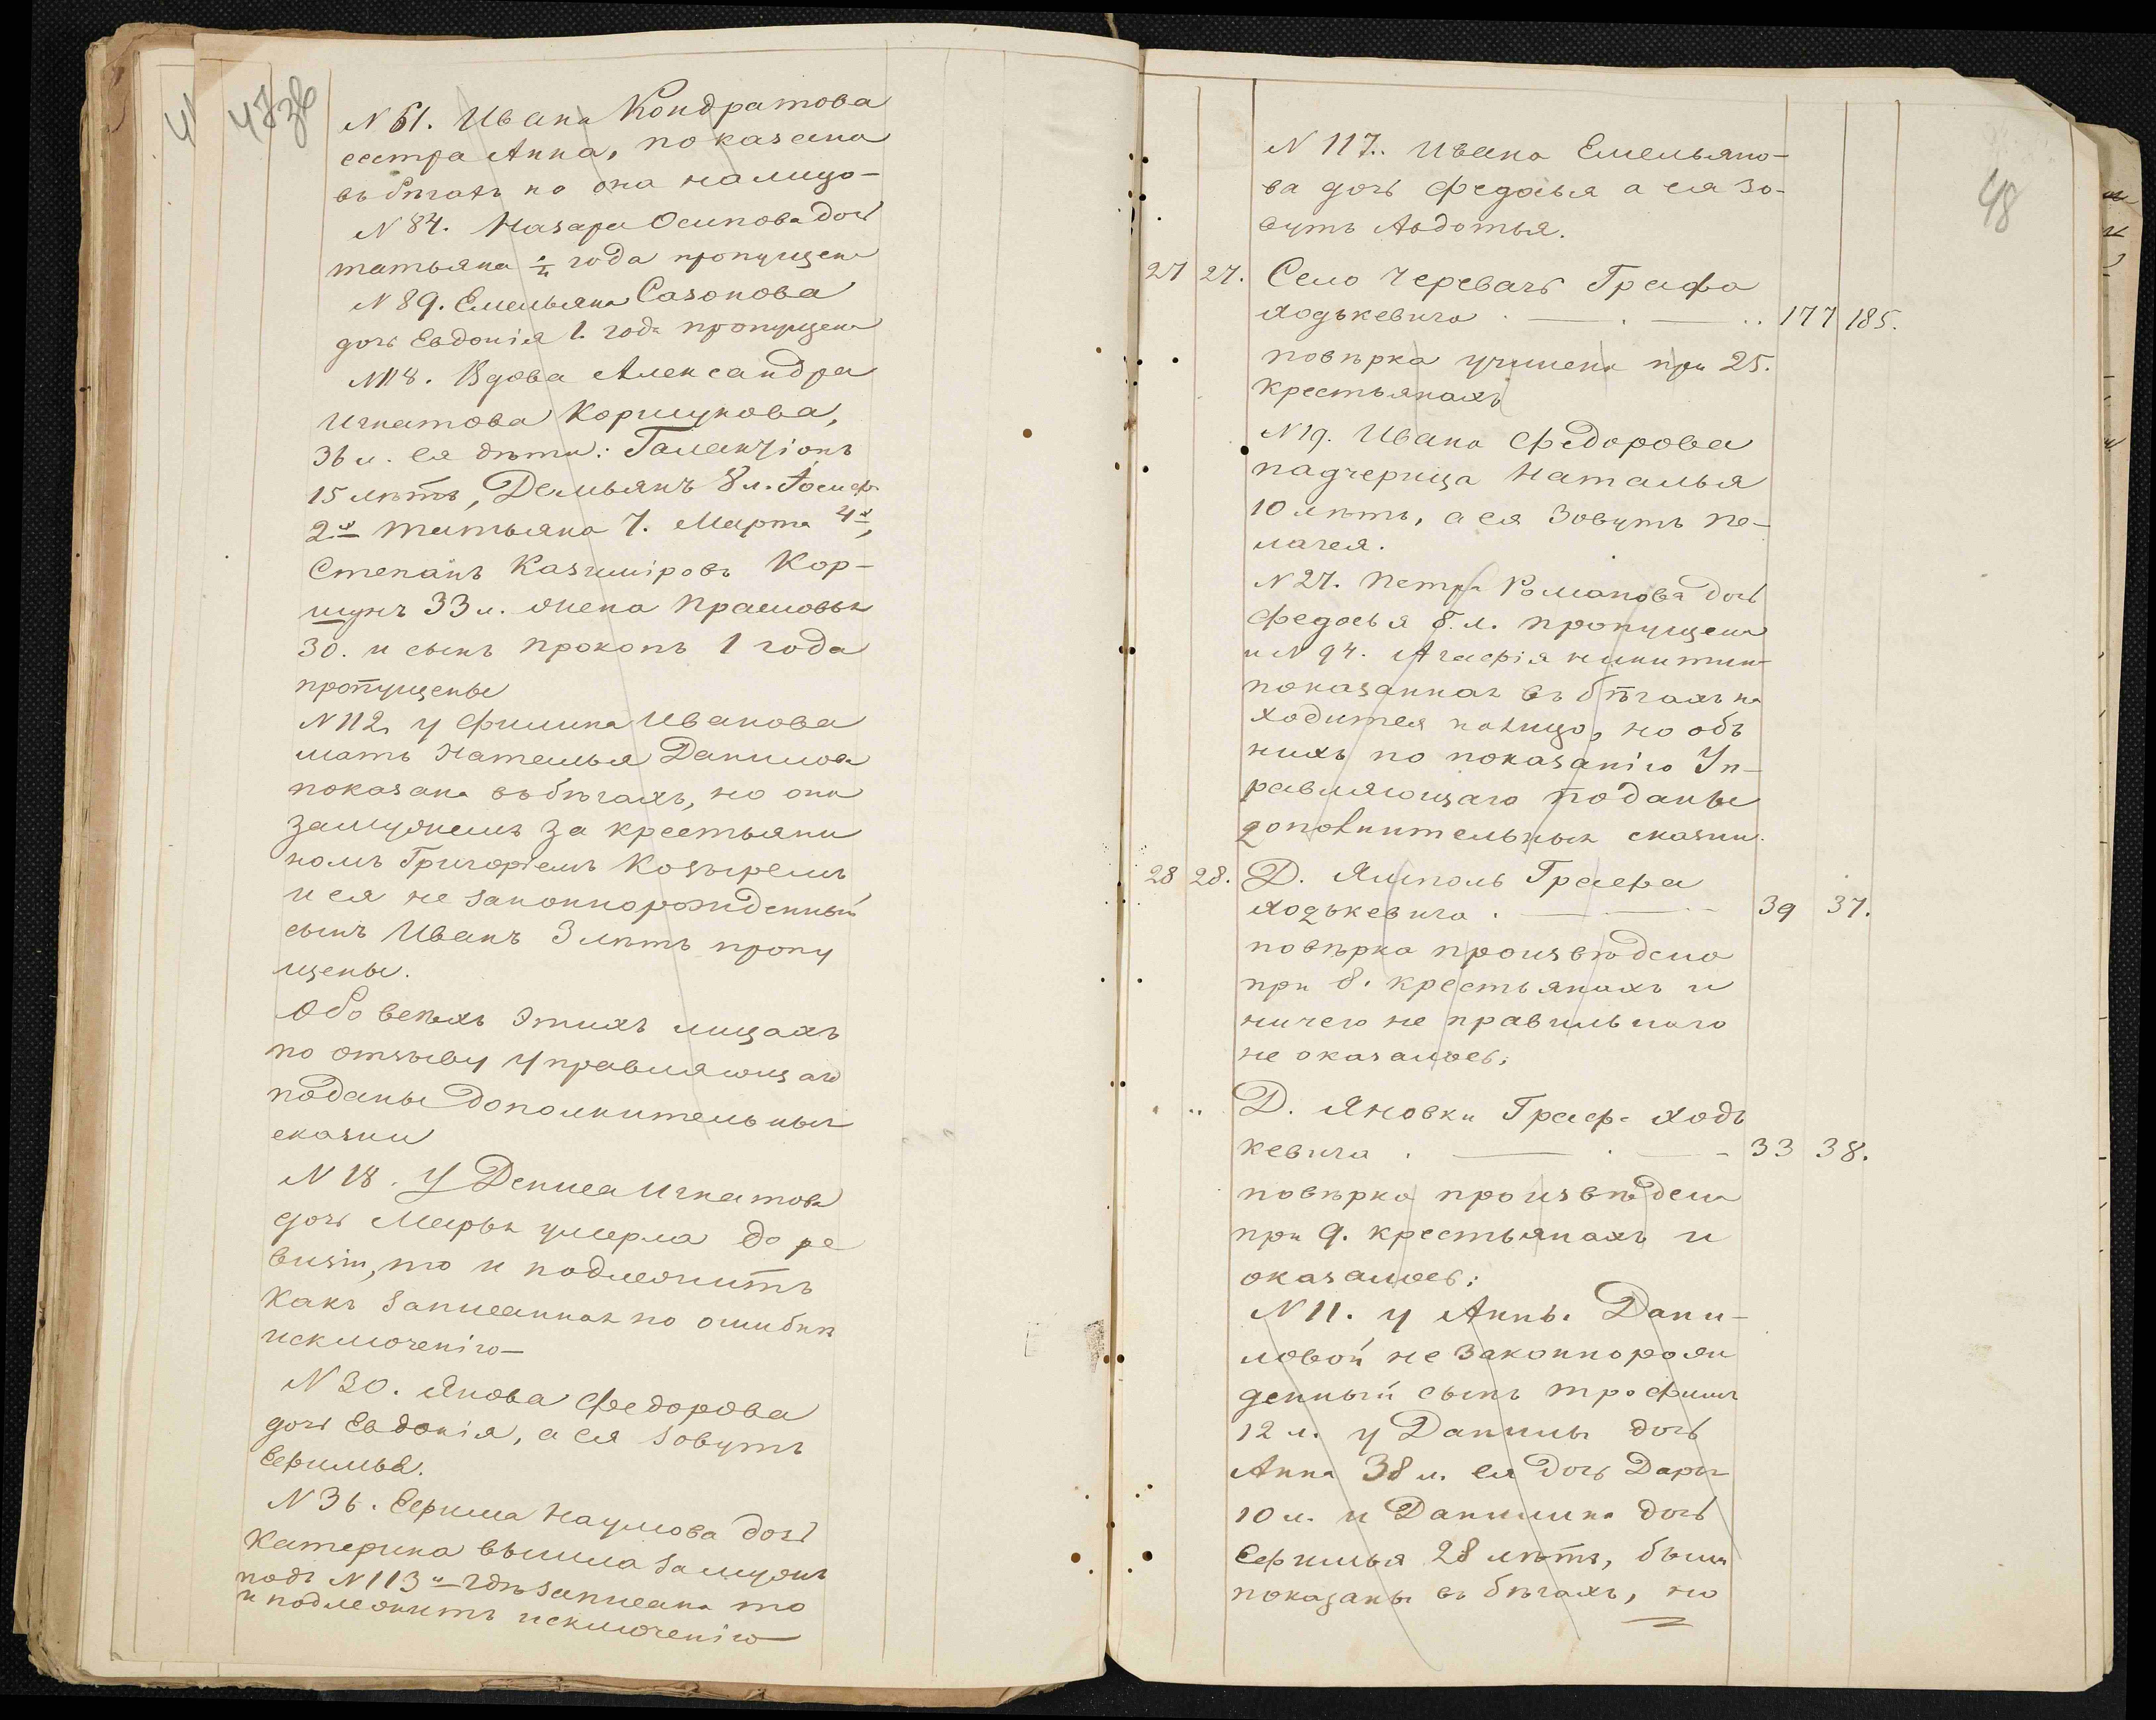 47 зв
N 61. Ивана Кондратова
сестра Анна, показана
въ бѣгахъ но она налицо-
N 84. Назара Осипова дочь
татьяна ½ года пропущена
N 89. Емельяна Сазонова
дочь Евдокія 1. года пропущена
N 118. Вдова Александра
Игнатова Коршукова,
36 л. ея дѣти: Галакціонъ
15 лѣтъ, Демьянъ 8 л. Іосифъ
2х татьяна 7. Марта 4х,
Степанъ Казиміровъ Кор-
шунъ 33 л. жена Прасковья
30. и сынъ Прокопъ 1 года
пропущены
N 112, у Филипа Иванова
мать Наталья Данилова
показана въ бѣгахъ, но она
замужемъ за крестьяни
номъ Григоріемъ Козыремъ
и ея не законнорожденный
сынъ Иванъ 3 лѣтъ пропу
щены.
Обо всѣхъ этихъ лицахъ
по отзыву управляющаго
поданы дополнительныя
сказки
N 18. У Дениса Игнатова
дочь Марья умерла до ре
визіи, то и подлежитъ
какъ записанная по ошибкѣ
исключенію-
N 30. Якова Федорова
дочь Евдокія, а ея зовутъ
Ефимья.
N 36. Ефима Наумова дочь
Катерина вышла замужъ
подъ N 113м гдѣ записана то
и подлежитъ исключенію
48
N 117.. Ивана Емельяно-
ва дочь Федосья а ея зо-
вутъ Авдотья.
27 27. Село Черевачь Графа
Ходькевича . — . — .. 177 185.
повѣрка учинена при 25.
крестьянахъ
N 19. Ивана Федорова
падчерица Наталья
10 лѣтъ, а ея зовутъ Пе-
лагея.
N 27. Петра Романова дочь
Федосья 8. л. пропущена
и N 94. Агафія Никитина
показанная въ бѣгахъ на
ходится налицо, но объ
нихъ по показанію Уп-
равляющаго поданы
дополнительныя сказки.
28 28. Д. Ямполь Графа
Ходькевича . — 39 37.
повѣрка произвѣдена
при 8. крестьянахъ и
ничего не правильнаго
не оказалось;
" Д. Яновки Графа Ходь
кевича . — . — 33 38.
повѣрка произвѣдена
при 9. крестьянахъ и
оказалось:
N 11. у Анны Дани-
ловой не законнорож
денный сынъ трофимъ
12 л. у Данилы дочь
Анна 38 л. ея дочь Дарья
10 л. и Данилина дочь
Ефимья 28 лѣтъ, были
показаны въ бѣгахъ, но